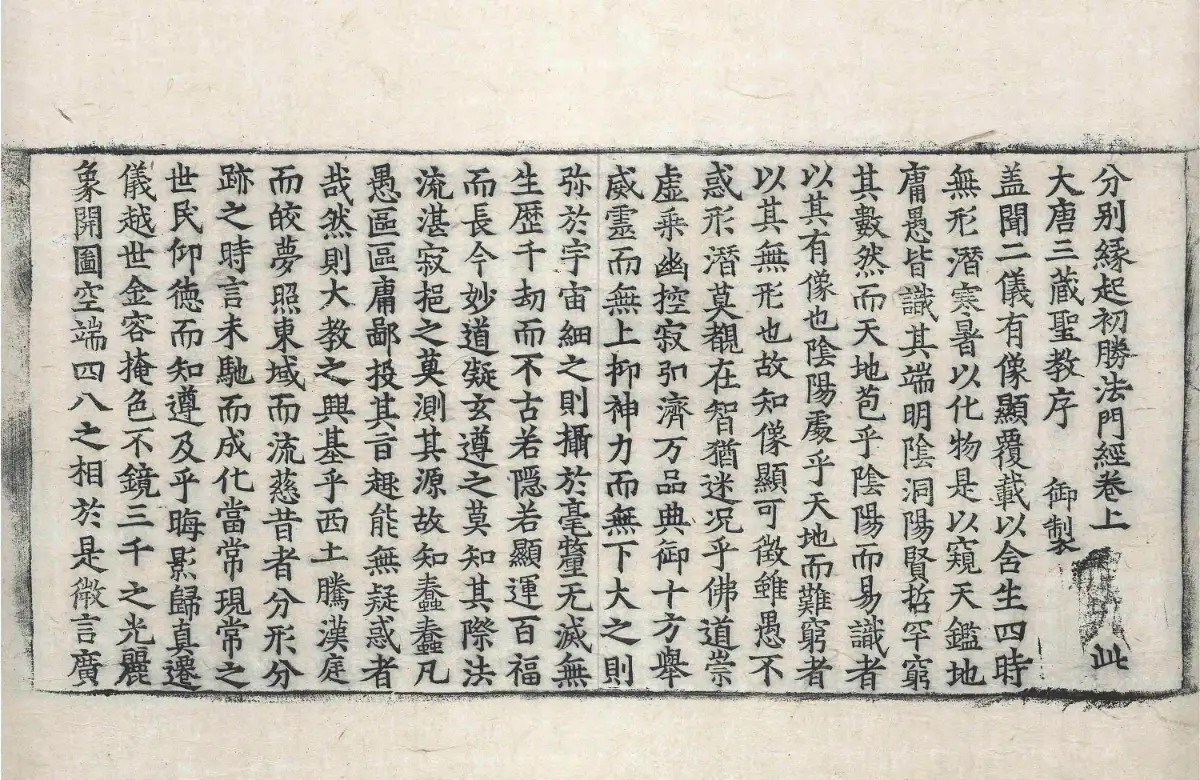 分别縁起初勝法門經卷上 此
大唐三蔵聖教序 御製
盖聞二儀有像顯覆載以含生四時
無形潜寒暑以化物是以窺天鑑地
庸愚皆識其端明陰洞陽賢哲罕窮
其數然而天地苞乎陰陽而易識者
以其有像也陰陽處乎天地而難窮者
以其無形也故知像顯可徵雖愚不
惑形潜莫覩在智猶迷况乎佛道崇
虚乘幽控寂弘濟万品典御十方舉
威靈而無上抑神力而無下大之則
弥於宇宙細之則攝於毫釐无滅無
生歷千劫而不古若隠若顯運百福
而長今妙道凝玄遵之莫知其際法
流湛寂挹之莫測其源故知蠢蠢凡
愚區區庸鄙投其旨趣能無疑惑者
哉然則大教之興基乎西土騰漢庭
而皎夢照東域而流慈昔者分形分
跡之時言未馳而成化當常現常之
世民仰德而知遵及乎晦影歸真遷
儀越世金容掩色不鏡三千之光麗
象開圖空端四八之相於是微言廣